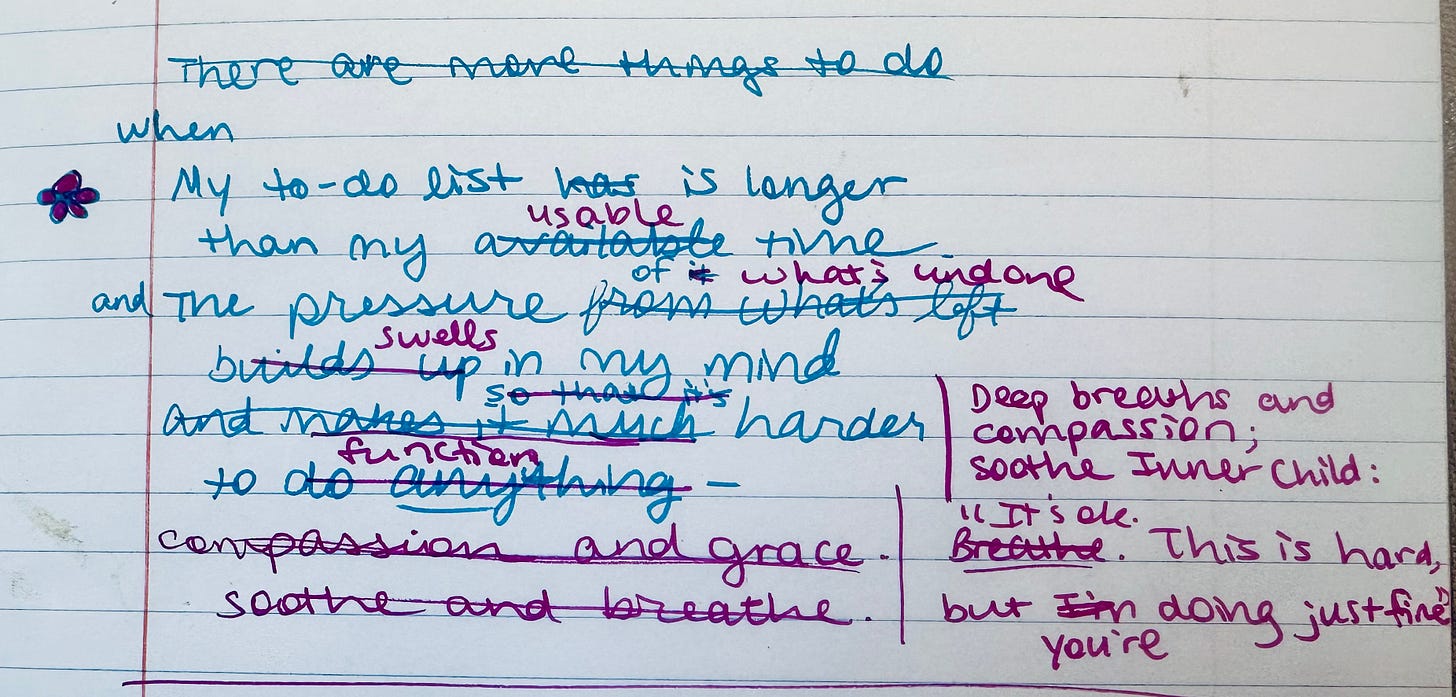 There are more things to do
when
My to-do list has is longer
usable
than my available time
of it what's undone
and The pressure from whats left
swells
builds up in my mind
so that it's
and makes it much harder
function
to do anything –
compassion and grace.
soothe and breathe.
Deep breaths and
compassion;
soothe Inner Child:
"It's ok.
Breathe. This is hard,
but I'm doing just fine"
you're